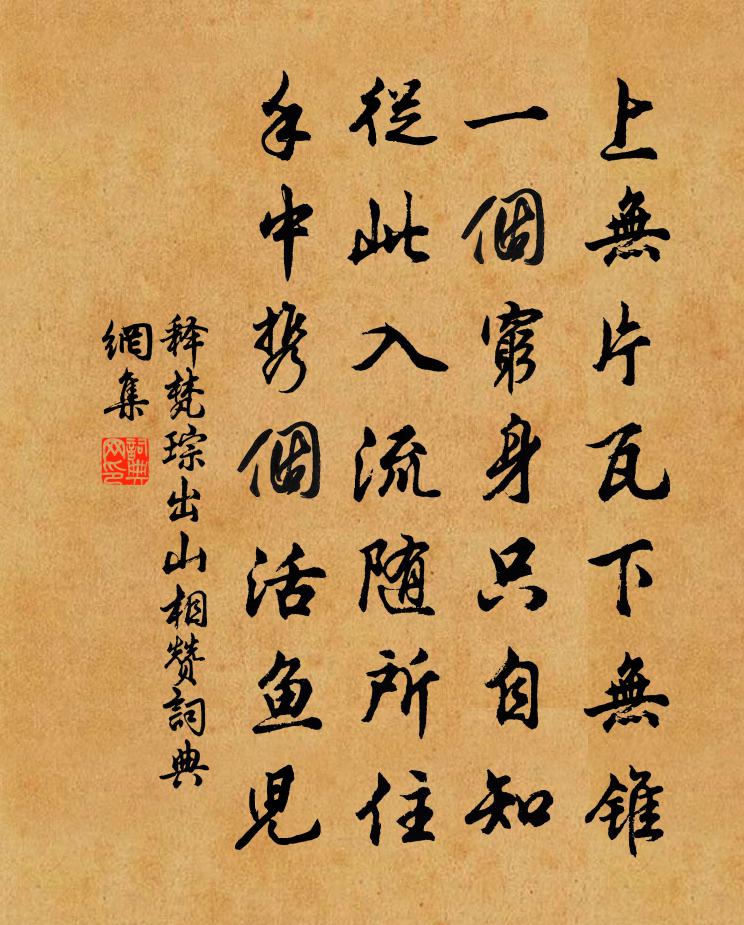 上無片瓦下無錐
一個窮身只自知
從此入流随所住
手中携個活鱼兒
释梵琮出山相赞詞典
網集
詞典网印